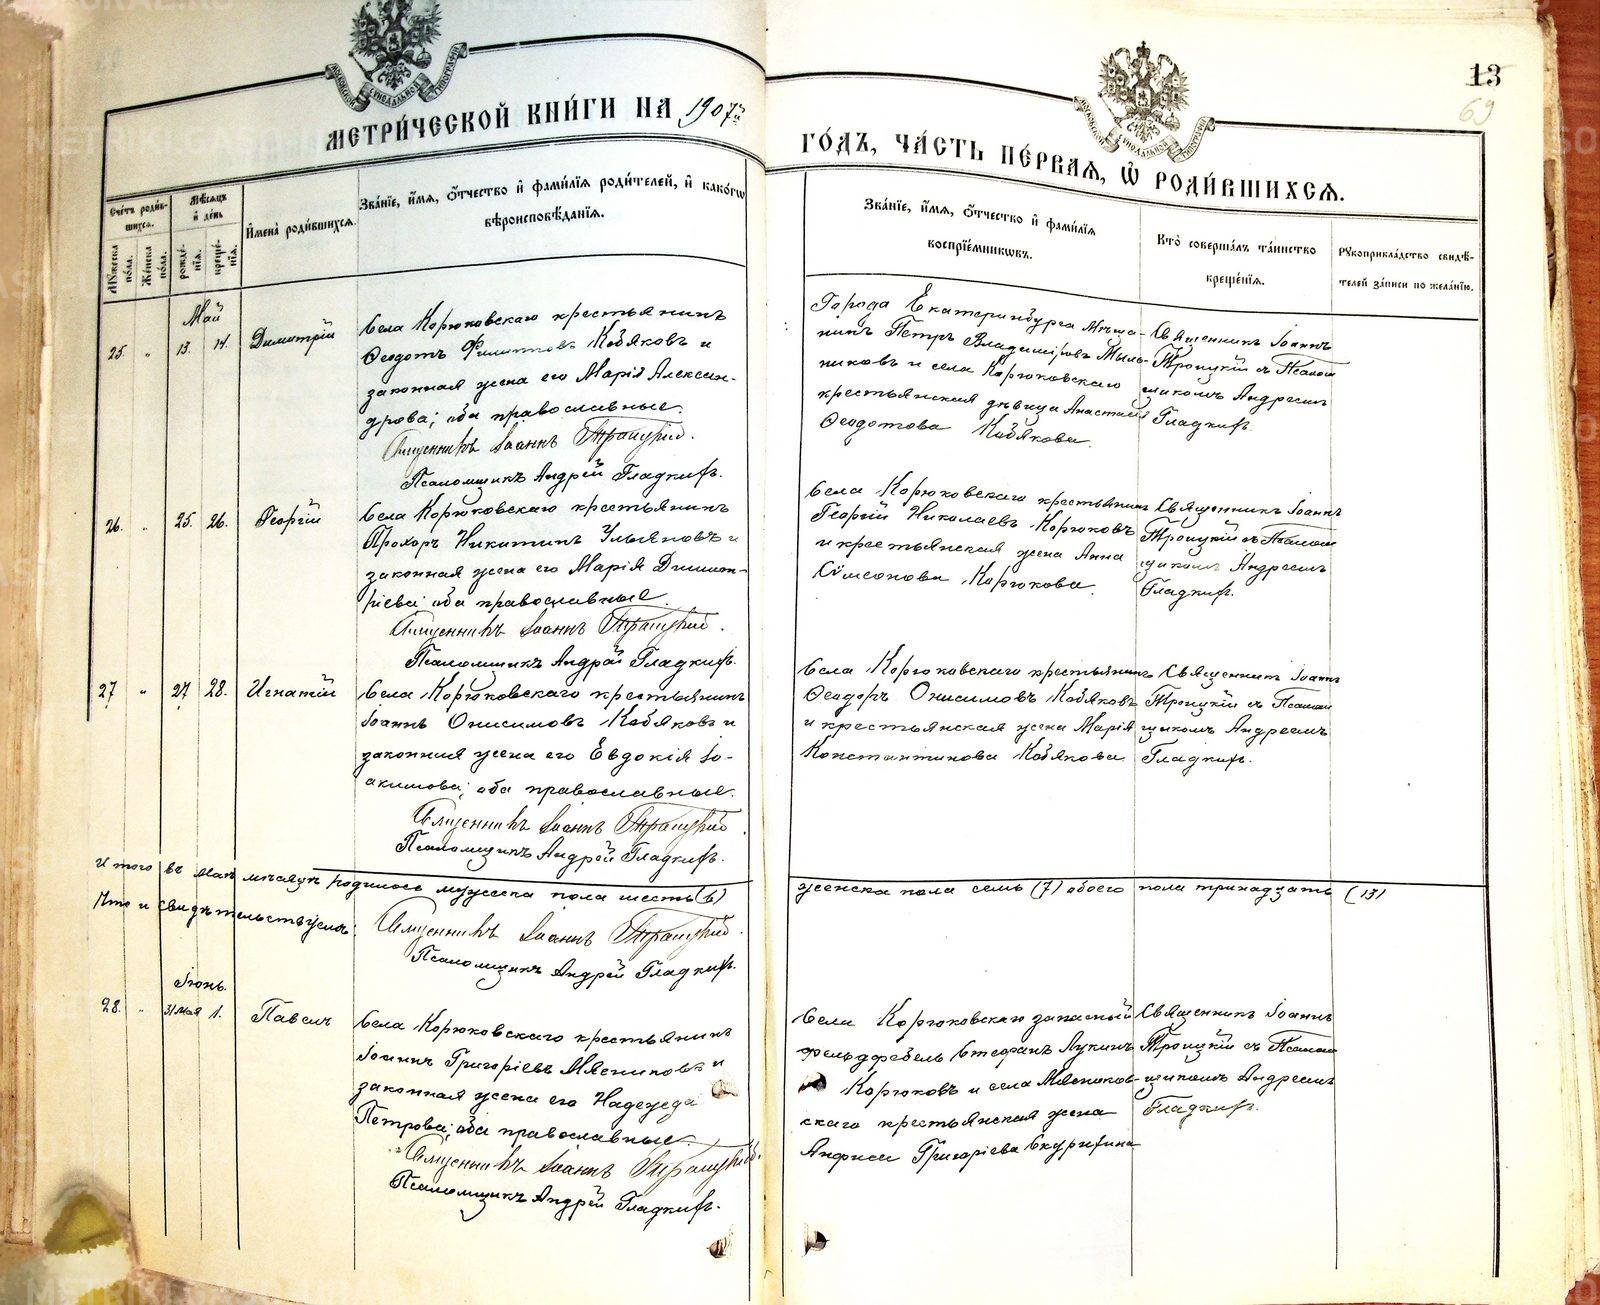 МЕТРИ́ЧЕСКОЙ КНИ́ГИ НА 1907й
ГО́ДЪ, ЧА́СТЬ ПЕ́РВАЯ, Ѡ РОДИ́ВШИХСЯ.
13
69
Сче́тъ роди́вшихся.
Мѣ́сяцъ и день
Мꙋ́жеска по́ла.
Же́нска по́ла.
рожде́нїя.
креще́нїя.
И́мена̀ роди́вшихся.
Зва́нїе, и́мя, ѻ҆́тчество и҆ фами́лїя роди́телей, и҆ како́гѡ
вѣроисповѣ́данїя.
Зва́нїе, и́мя, ѻ҆́тчество и҆ фами́лїя
воспрїе́мникѡвъ.
Кто̀ соверша́лъ та́инство
креще́нїя.
Рꙋкоприкла́дство свидѣ́-
телей за́писи по жела́нїю.
Май
25. " 13. 14. Димитрій
Села Корюковскаго крестьянинъ
Ѳеодотъ Филипповъ Кобяковъ и
законная жена его Марія Алексан-
дрова; оба православные.
Священникъ Іоаннъ Троицкій.
Псаломщикъ Андрей Гладкихъ.
Города Екатеринбурга Мѣща-
нинъ Петръ Владиміровъ Мыль-
никовъ и села Корюковскаго
крестьянская дѣвица Анастасія
Ѳеодотова Кобякова.
Священникъ Іоаннъ
Троицкій съ Псалом
щикомъ Андреемъ
Гладкихъ
26. " 25. 26. Георгій
Села Корюковскаго крестьянинъ
Прохоръ Никитинъ Ульяновъ и
законная жена его Марія Димит-
ріева; оба православные.
Священникъ Іоаннъ Троицкій.
Псаломщикъ Андрей Гладкихъ.
Села Корюковскаго крестьянинъ
Георгій Николаевъ Корюковъ
и крестьянская жена Анна
Сѵмеонова Корюкова.
Священникъ Іоаннъ
Троицкій съ Псалом
щикомъ Андреемъ
Гладкихъ.
27 " 27 28. Игнатій
Села Корюковскаго крестьянинъ
Іоаннъ Онисимовъ Кобяковъ и
законная жена его Евдокія Іо-
акимова; оба православные.
Священникъ Іоаннъ Троицкій.
Псаломщикъ Андрей Гладкихъ.
Села Корюковскаго крестьянинъ
Ѳеодоръ Онисимовъ Кобяковъ
и крестьянская жена Марія
Константинова Кобякова
Священникъ Іоаннъ
Троицкій съ Псалом
щикомъ Андреемъ
Гладкихъ.
Итого въ маѣ мѣсяцѣ родилось мужеска пола шесть (6)
женска пола семь (7) обоего пола тринадцать (13)
Что и свидѣтельствуемъ:
Священникъ Іоаннъ Троицкій.
Псаломщикъ Андрей Гладкихъ.
Іюнь.
28. " 31 мая 1. Павелъ
Села Корюковскаго крестьянинъ
Іоаннъ Григоріевъ Мясниковъ и
законная жена его Надежда
Петрова; оба православные.
Священникъ Іоаннъ Троицкій.
Псаломщикъ Андрей Гладкихъ.
Села Корюковскаго запасный
фельдфебель Стефанъ Лукинъ
Корюковъ и села Мясников-
скаго крестьянская жена
Анфиса Григоріева Скурихина
Священникъ Іоаннъ
Троицкій съ Псалом
щикомъ Андреемъ
Гладкихъ.